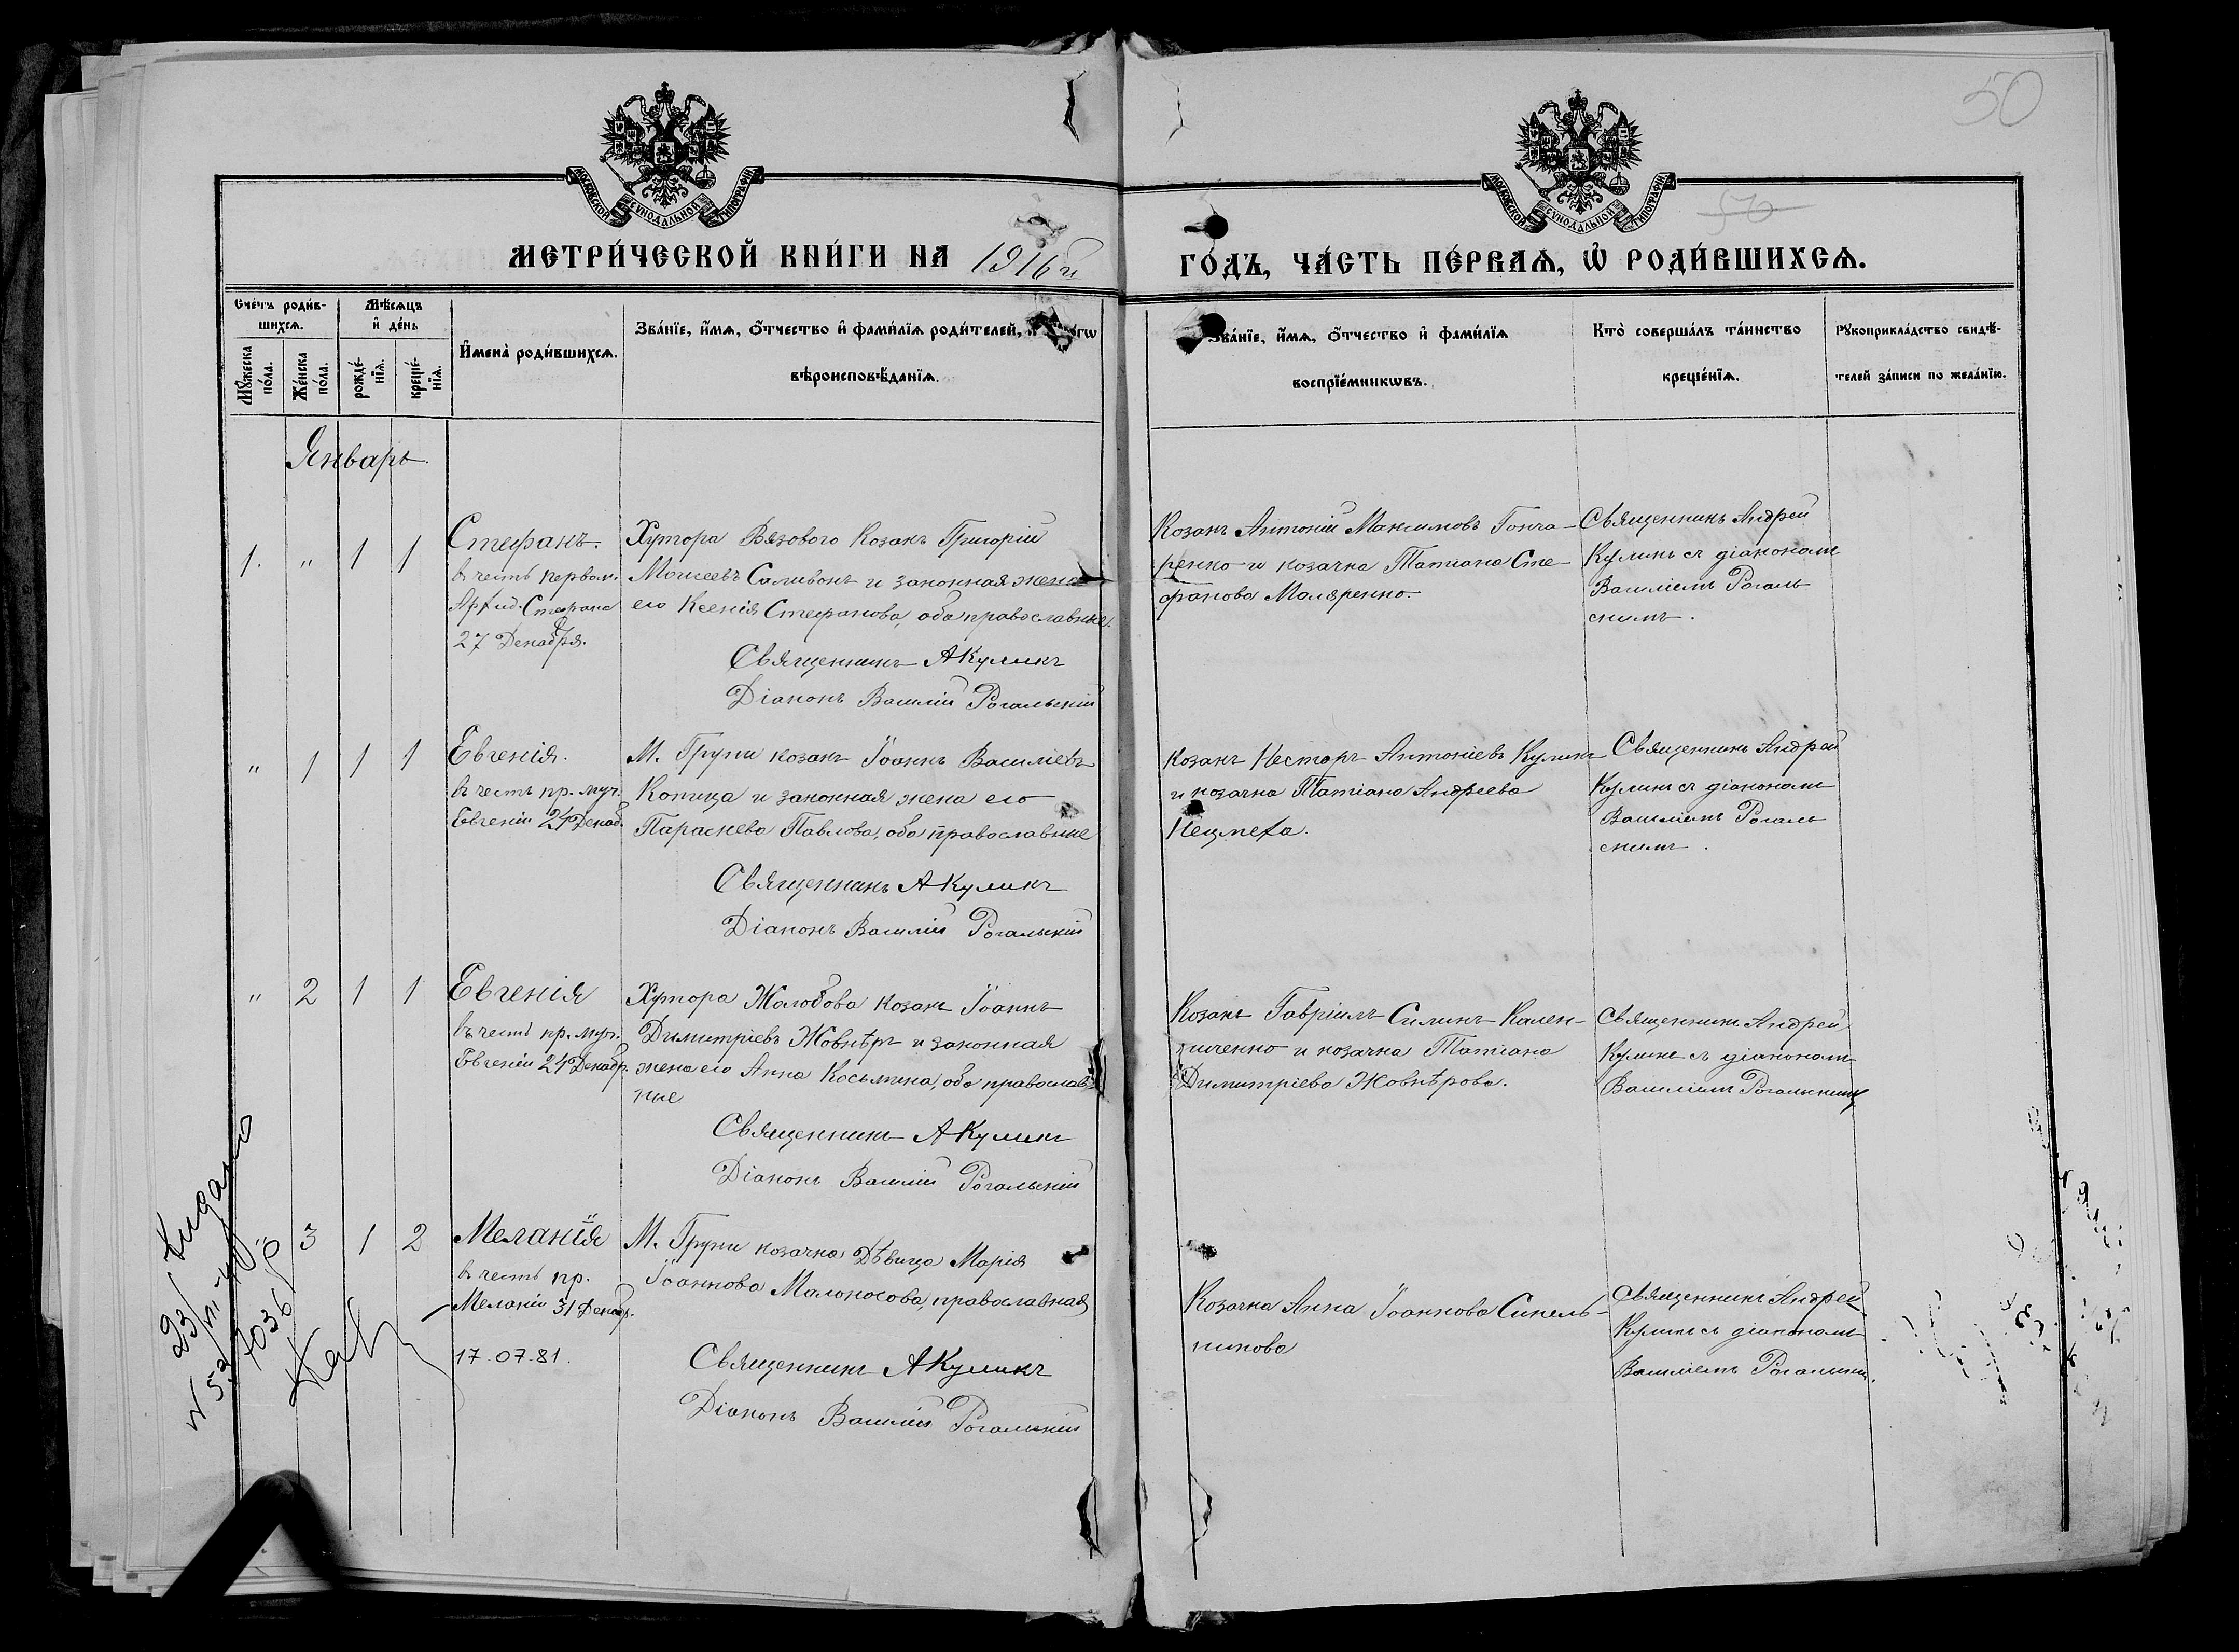 50
МОСКОВСКОЙ СѴНОДАЛЬНОЙ ТИПОГРАФІИ
МОСКОВСКОЙ СѴНОДАЛЬНОЙ ТИПОГРАФІИ
МЕТРИ́ЧЕСКОЙ КНИ́ГИ НА 1916й ГО́ДЪ, ЧА́СТЬ ПЕ́РВАѦ, Ѡ҆ РОДИ́ВШИХСѦ.
Сче́тъ роди́в-
шихсѧ.
Мꙋ́жеска
по́ла.
Же́нска
по́ла.
Мѣ́сѧцъ
и҆ де́нь
рожде́-
нїѧ.
креще́-
нїѧ.
И҆мена̀ роди́вшихсѧ.
Зва́нїе, и҆́мѧ, о҆́тчество и҆ фами́лїѧ роди́телей,
вѣроисповѣ́данїѧ.
Зва́нїе, и҆́мѧ, о҆́тчество и҆ фами́лїѧ
воспрїе́мникѡвъ.
Кто̀ соверша́лъ та́инство
креще́нїѧ.
Рꙋкоприкла́дство свидѣ́-
телей за́писи по жела́нїю.
Январь.
1. " 1 1
Стефанъ.
въ честь первом.
Архид. Стефана
27 Декабря.
Хутора Вязового Козакъ Григорій
Моисеевъ Саливонъ и законная жена
его Ксенія Стефанова, оба православные.
Священникъ А Куликъ
Діаконъ Василій Рогальскій
Козакъ Антоній Максимовъ Гонча-
ренко и козачка Татіана Сте-
фанова Маляренко.
Священникъ Андрей
Куликъ съ діакономъ
Василіемъ Рогаль
скимъ.
" 1 1 1
Евгенія.
въ честь пр. муч.
Евгеніи 24 Декаб.
М. Груни козакъ Іоаннъ Василіевъ
Копица и законная жена его
Параскева Павлова, оба православные
Священникъ А Куликъ
Діаконъ Василій Рогальскій
Козакъ Несторъ Антоніевъ Куликъ
и козачка Татіана Андреева
Священникъ Андрей
Куликъ съ діакономъ
Василіемъ Рогаль
скимъ.
" 2 1 1
Евгенія
въ честь пр. муч.
Евгеніи 24 Декабр.
Хутора Жолобова козакъ Іоаннъ
Димитріевъ Жовнѣръ и законная
жена его Анна Косьмина, оба православ
ные
Священникъ А Куликъ
Діаконъ Василій Рогальскій
Козакъ Гавріилъ Силинъ Кален-
иченко и козачка Татіана
Димитріева Жовнѣрова.
Священникъ Андрей
Куликъ съ діакономъ
Василіемъ Рогальскимъ
" 3 1 2
Меланія
въ честь пр.
Меланіи 31 Декабр.
17.07.81.
М. Груни козачка Дѣвица Марія
Іоаннова Малоносова, православная
Священникъ А Куликъ
Діаконъ Василій Рогальскій
Козачка Анна Іоаннова Синель-
никова
Священникъ Андрей
Куликъ съ діакономъ
Василіемъ Рогальским.